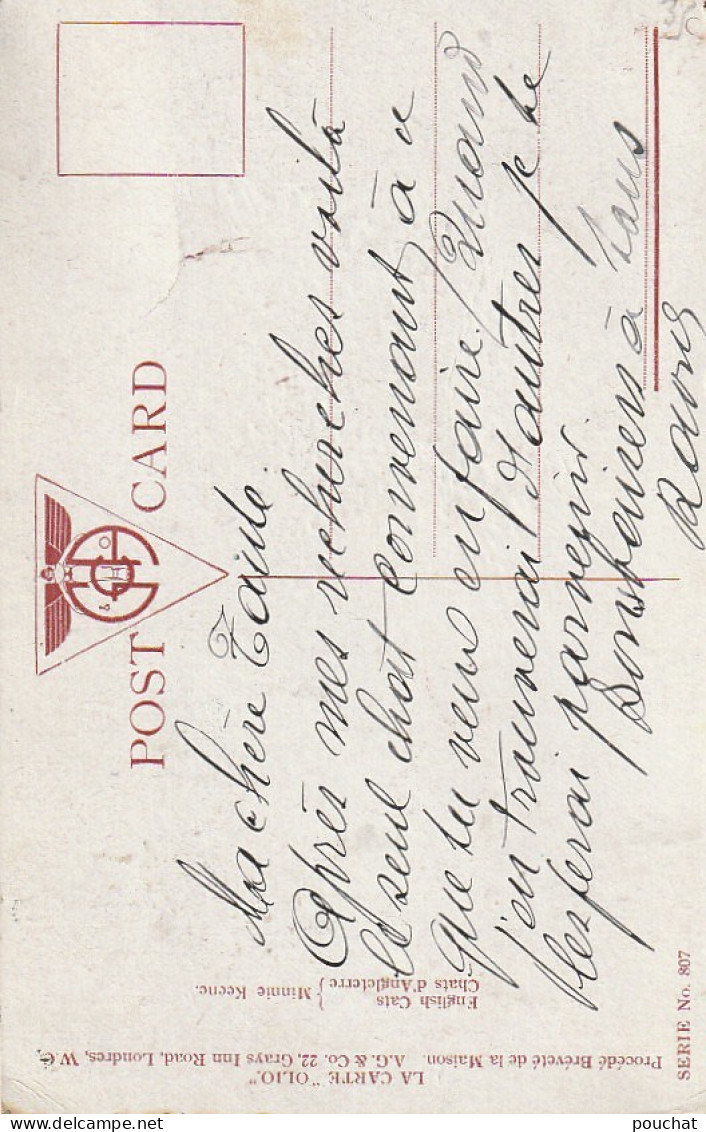 POST CARD
Ma chère Tante.
Après mes recherches voilà
le seul chat convenant à ce
que tu veux en faire, Quand
j'en trouverai d'autres je te
les ferai parvenir.
Bons baisers à tous
English Cats
Chats d'Angleterre } Minnie Keene.
LA CARTE "OLIO."
Procédé Bréveté de la Maison. A.G. & Co. 22, Grays Inn Road, Londres, W.C.
SERIE No. 807
pouchat